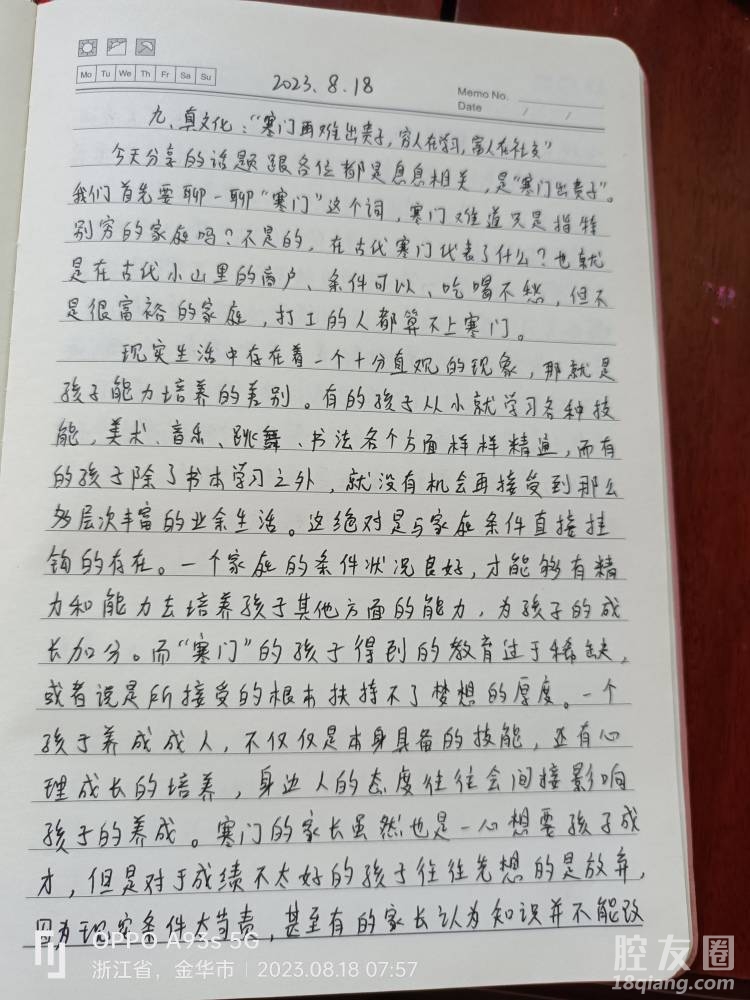 Mo Tu We Th Fr Sa Su
2023.8.18
Memo No.
Date / /
九、真文化:“寒门再难出贵子,穷人在学习,富人在社交”
今天分享的话题跟各位都是息息相关,是“寒门出贵子”。
我们首先要聊一聊“寒门”这个词,寒门难道只是指特
别穷的家庭吗?不是的,在古代寒门代表了什么?也就
是在古代小山里的商户、条件可以、吃喝不愁,但不
是很富裕的家庭,打工的人都算不上寒门。
现实生活中存在着一个十分直观的现象,那就是
孩子能力培养的差别。有的孩子从小就学习各种技
能,美术、音乐、跳舞、书法各个方面样样精通,而有
的孩子除了书本学习之外,就没有机会再接受到那么
多层次丰富的业余生活。这绝对是与家庭条件直接挂
钩的存在。一个家庭的条件状况良好,才能够有精
力和能力去培养孩子其他方面的能力,为孩子的成
长加分。而“寒门”的孩子得到的教育过于稀缺,
或者说是所接受的根本扶持不了梦想的厚度。一个
孩子养成成人,不仅仅是本身具备的技能,还有心
理成长的培养,身边人的态度往往会间接影响
孩子的养成。寒门的家长虽然也是一心想要孩子成
才,但是对于成绩不太好的孩子往往先想的是放弃,
因为现实条件太苛责,甚至有的家长认为知识并不能改
OPPO A93s 5G
浙江省,金华市 | 2023.08.18 07:57
腔友圈
18qiang.com